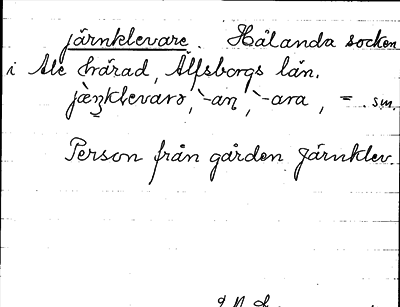 järnklevare. Hålanda socken
i Ale härad, Älfsborgs län.
jæɳklevarə, `-an, `-ara, = . sm.
Person från gården Järnklev.